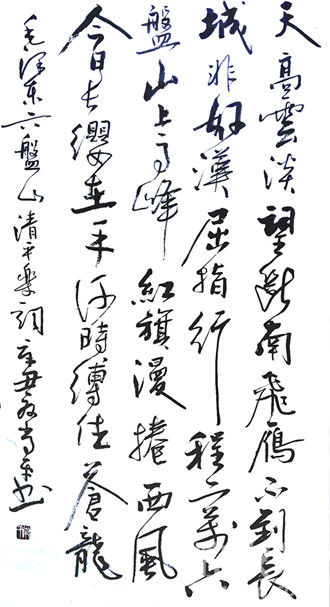 天高雲淡望斷南飛雁不到長
城非好漢屈指行程二萬六
盤山上高峰紅旗漫捲西風
今日長纓在手何時縛住蒼龍
毛澤東六盤山清平樂詞辛丑書